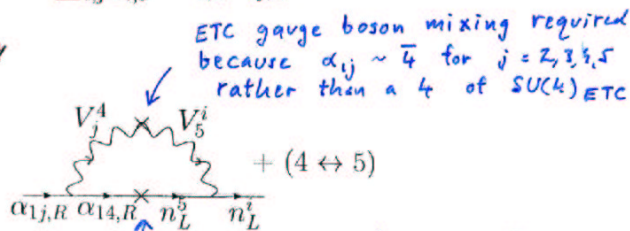 ETC gauge boson mixing required
because α₁ⱼ ~ 4̄ for j = 2,3,4,5
rather than a 4 of SU(4) ETC
V_j^4 V_5^i
+ (4 ↔ 5)
α_{1j,R} α_{14,R} n_L^5 n_L^i